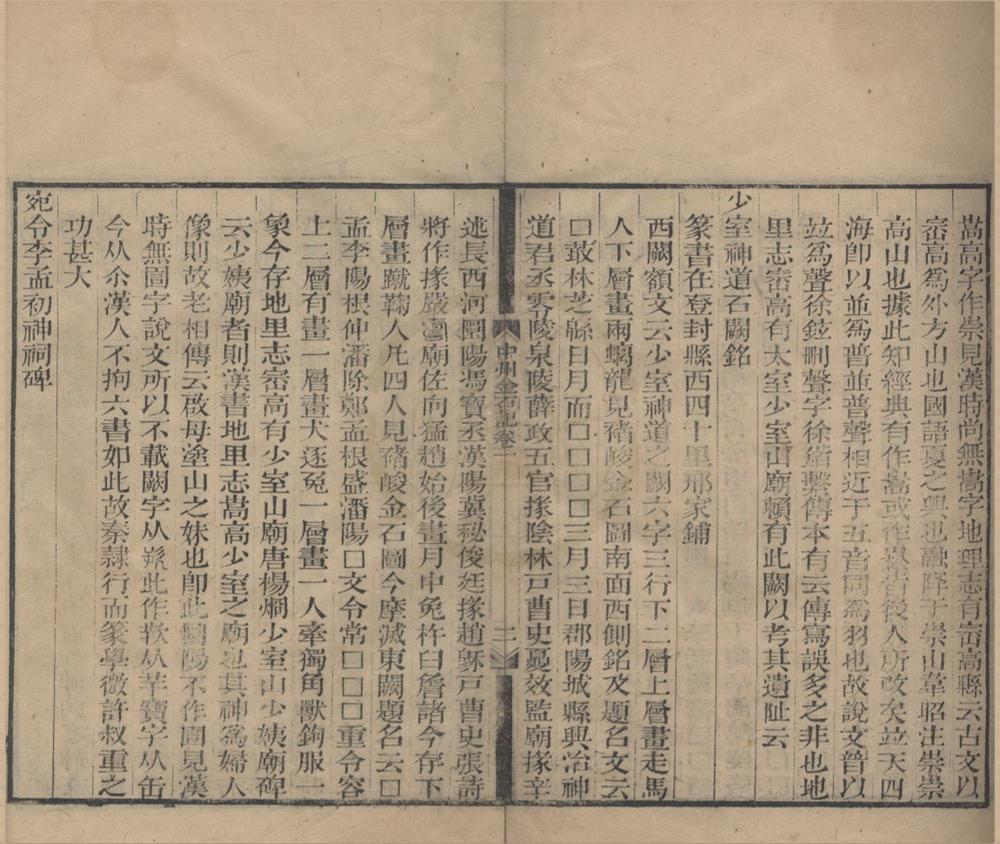 嵩高字作崇見漢時尚無嵩字地理志有崈高縣云古文以
崈高爲外方山也國語夏之興也融降于崇山韋昭注崇崇
高山也據此知經典有作嵩或作崧皆後人所改矣竝天四
海卽以並爲普並普聲相近于五音同爲羽也故說文普以
竝爲聲徐鉉刪聲字徐鍇繫傳本有云傳寫誤多之非也地
里志崈高有太室少室山廟賴有此闕以考其遺阯云
少室神道石闕銘
篆書在登封縣西四十里邢家鋪
西闕額文云少室神道之闕六字三行下二層上層畫走馬
人下層畫兩螭龍見褚峻金石圖南面西側銘及題名文云
□菆林芝緜日月而□□□□三月三日郡陽城縣興治神
道君丞零陵泉陵薛政五官掾陰林戸曹史夏效監廟掾辛
中州金石記卷一
二
述長西河圜陽馮寶丞漢陽冀祕俊廷掾趙穌戸曹史張詩
將作掾嚴壽廟佐向猛趙始後畫月中兔杵臼詹諸今存下
層畫蹴鞠人凡四人見褚峻金石圖今摩滅東闕題名云□
孟李陽根仲潘除鄭孟根盛潘陽□文令常□□□重令容
上二層有畫一層畫犬逐兔一層畫一人牽獨角獸鉤服一
象今存地里志崈高有少室山廟唐楊烱少室山少姨廟碑
云少姨廟者則漢書地里志嵩高少室之廟也其神爲婦人
像則故老相傳云啟母塗山之妹也卽此圜陽不作圁見漢
時無圁字說文所以不載闕字从㡿此作欮从芉寶字从缶
今从尒漢人不拘六書如此故秦隸行而篆學微許叔重之
功甚大
宛令李孟初神祠碑